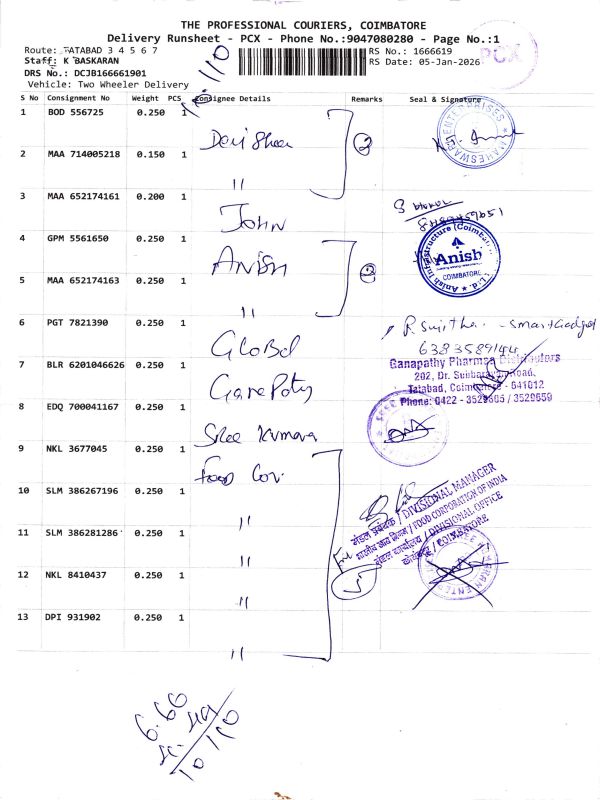 THE PROFESSIONAL COURIERS, COIMBATORE
Delivery Runsheet - PCX - Phone No.:9047080280 - Page No.:1
Route: TATABAD 3 4 5 6 7
RS No.: 1666619
PCX
Staff: K BASKARAN
RS Date: 05-Jan-2026
DRS No.: DCJB166661901
Vehicle: Two Wheeler Delivery
110
S No Consignment No Weight PCS Consignee Details Remarks Seal & Signature
1 BOD 556725 0.250 1
2 MAA 714005218 0.150 1 "
MAHESWARI ENTERPRISES
3 MAA 652174161 0.200 1 John
4 GPM 5561650 0.250 1 Anish
Anish
COIMBATORE
5 MAA 652174163 0.250 1 "
6 PGT 7821390 0.250 1 Global
6383589144
7 BLR 6201046626 0.250 1
Ganapathy Pharma Distributors
202, Dr. Subbarayan Road,
Tatabad, Coimbatore - 641012
Phone: 0422 - 3529605 / 3529659
8 EDQ 700041167 0.250 1 Sree Kumara
9 NKL 3677045 0.250 1 Food Cor.
10 SLM 386267196 0.250 1 "
11 SLM 386281286 0.250 1 "
12 NKL 8410437 0.250 1 "
13 DPI 931902 0.250 1 "
मंडल प्रबंधक / DIVISIONAL MANAGER
भारतीय खाद्य निगम / FOOD CORPORATION OF INDIA
मंडल कार्यालय / DIVISIONAL OFFICE
कोयंबत्तूर / COIMBATORE
5
6.60